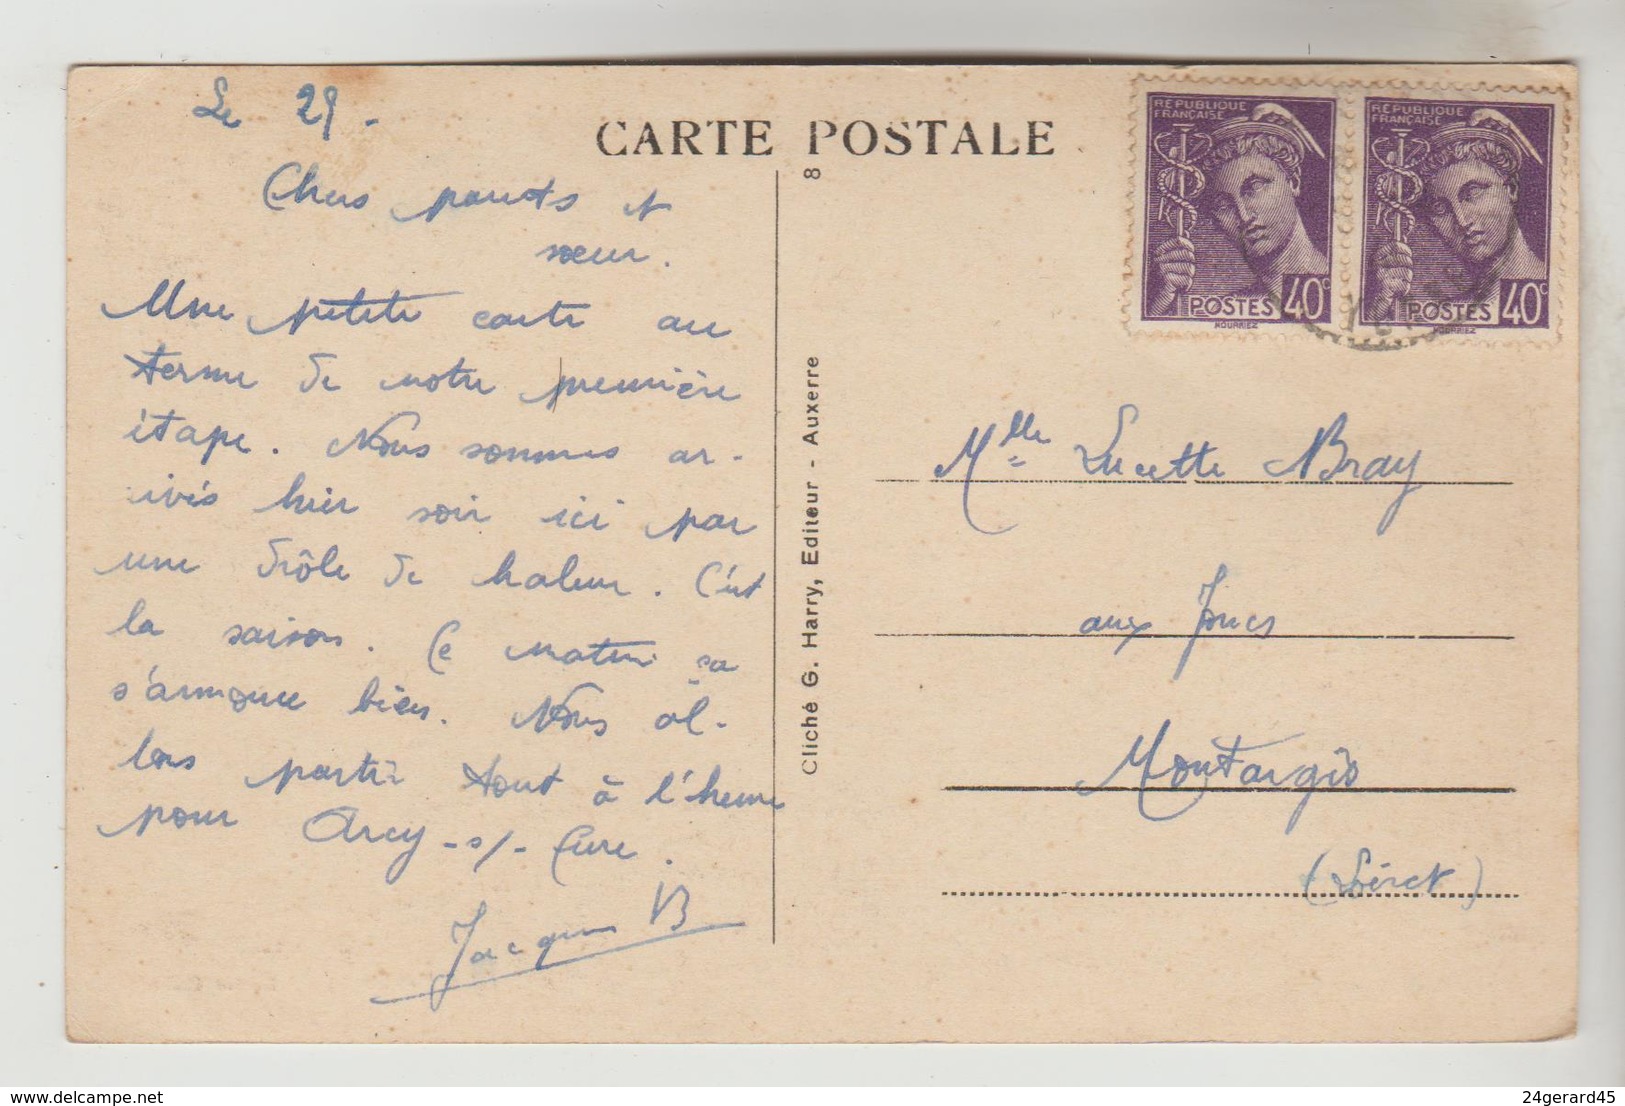 Le 29 -
Chers parents et
sœur.
Une petite carte au
terme de notre première
étape. Nous sommes ar-
rivés hier soir ici par
une drôle de haleur. C'est
la saison. Ce matin sa
s'annonce bien. Nous al-
lons partir tout à l'heure
pour Arcy-s/-Cure.
Jacques B
CARTE POSTALE
8
Cliché G. Harry, Editeur - Auxerre
RÉPUBLIQUE
FRANÇAISE
POSTES 40c
HOURRIEZ
RÉPUBLIQUE
FRANÇAISE
POSTES 40c
HOURRIEZ
Mlle Lucette Bray
aux Joncs
Montargis
(Loiret)
24gerard45